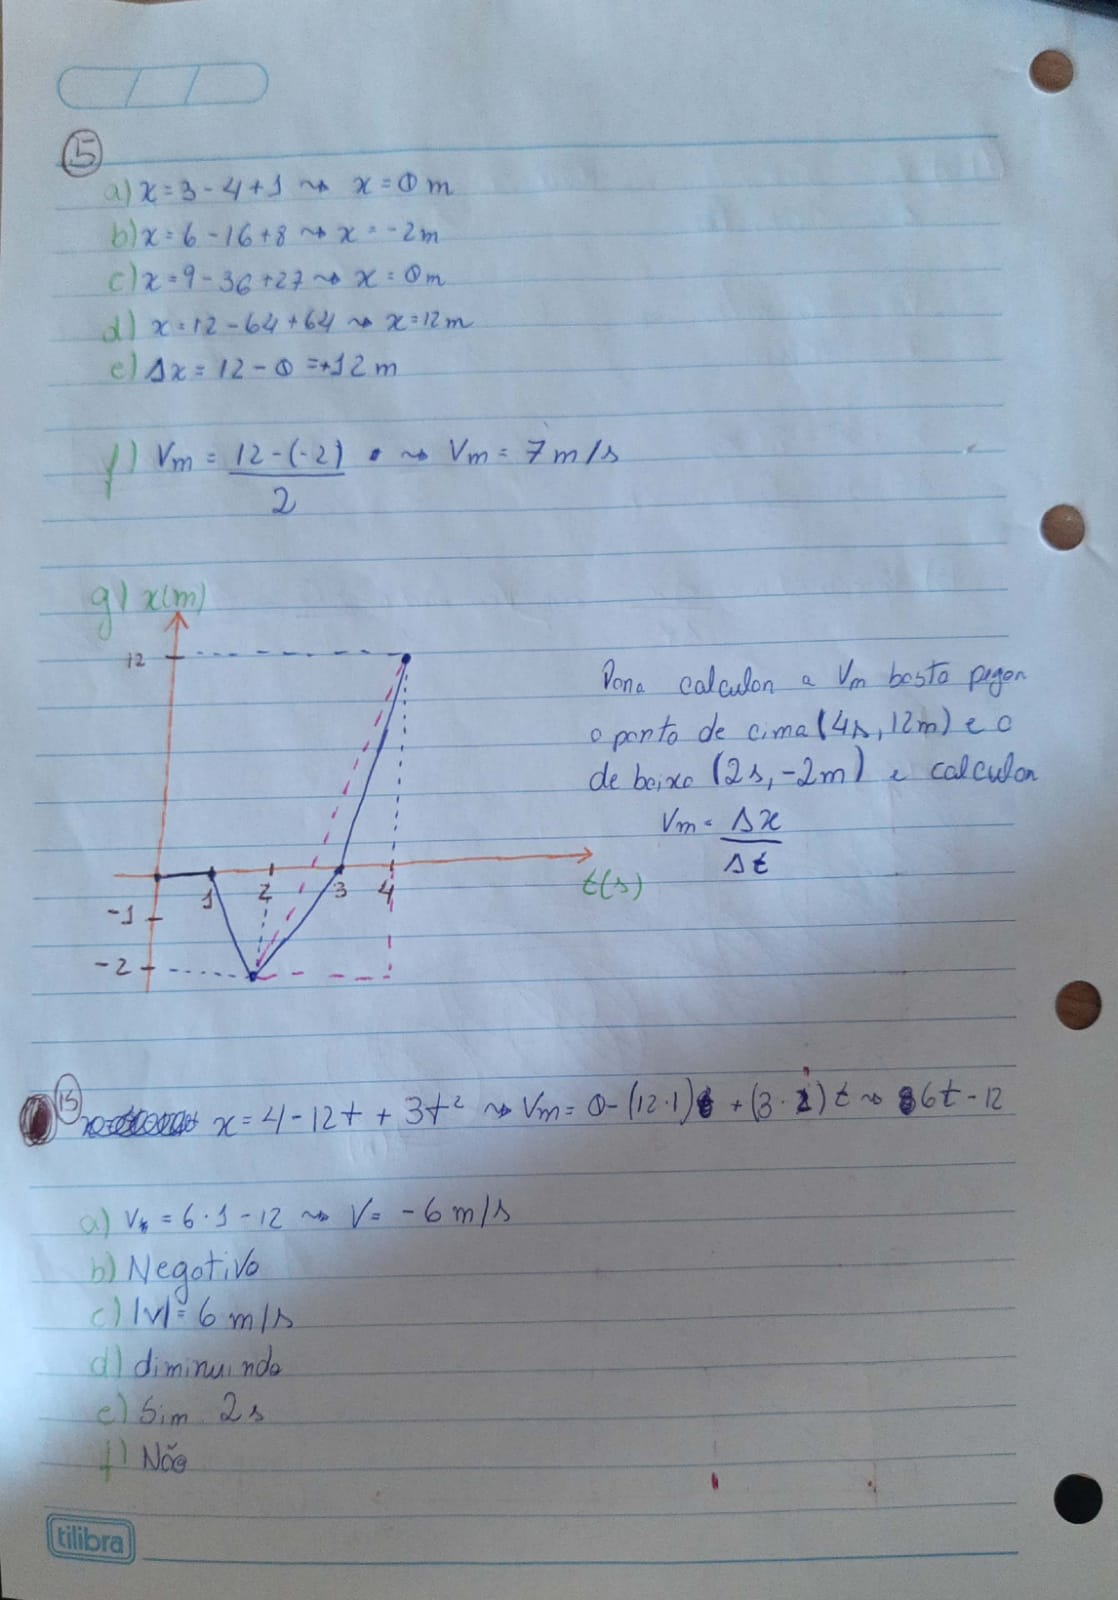 5
a) x = 3 - 4 + 1 ⇝ x = 0 m
b) x = 6 - 16 + 8 ⇝ x = -2 m
c) x = 9 - 36 + 27 ⇝ x = 0 m
d) x = 12 - 64 + 64 ⇝ x = 12 m
e) Δx = 12 - 0 = +12 m
f) Vm = 12 - (-2) / 2 ⇝ Vm = 7 m/s
g) x(m)
12
Para calcular a Vm basta pegar
o ponto de cima (4s, 12m) e o
de baixo (2s, -2m) e calcular
Vm = Δx / Δt
1 2 3 4 t(s)
-1
-2
15 x = 4 - 12t + 3t² ⇝ Vm = 0 - (12·1) + (3·2)t ⇝ 6t - 12
a) V = 6·1 - 12 ⇝ V = -6 m/s
b) Negativo
c) |v| = 6 m/s
d) diminuindo
e) Sim. 2s
f) Não
tilibra